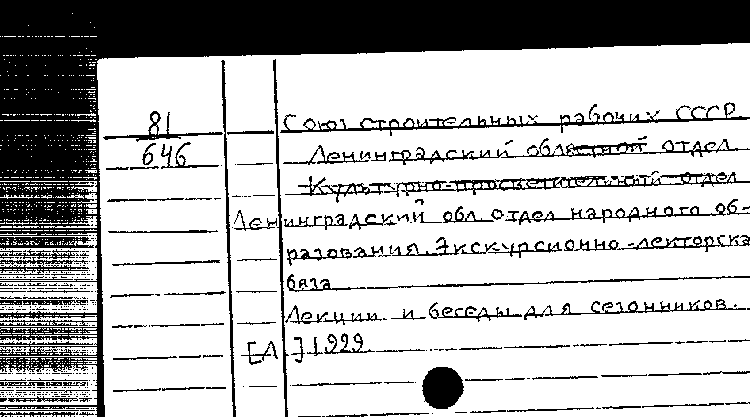 81
646
Союз строительных рабочих СССР.
Ленинградский областной отдел.
Культурно-просветительный отдел
Ленинградский обл. отдел народного об-
разования. Экскурсионно-лекторска
база
Лекции и беседы для сезонников.
[Л.] 1929